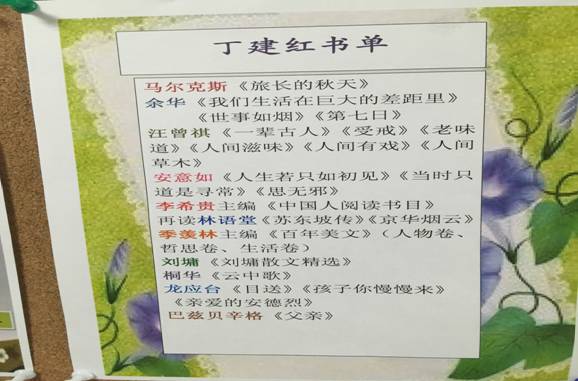 丁建红书单
马尔克斯《旅长的秋天》
余华《我们生活在巨大的差距里》
《世事如烟》《第七日》
汪曾祺《一辈古人》《受戒》《老味
道》《人间滋味》《人间有戏》《人间
草木》
安意如《人生若只如初见》《当时只
道是寻常》《思无邪》
李希贵主编《中国人阅读书目》
再读林语堂《苏东坡传》《京华烟云》
季羡林主编《百年美文》（人物卷、
哲思卷、生活卷）
刘墉《刘墉散文精选》
桐华《云中歌》
龙应台《目送》《孩子你慢慢来》
《亲爱的安德烈》
巴兹贝辛格《父亲》